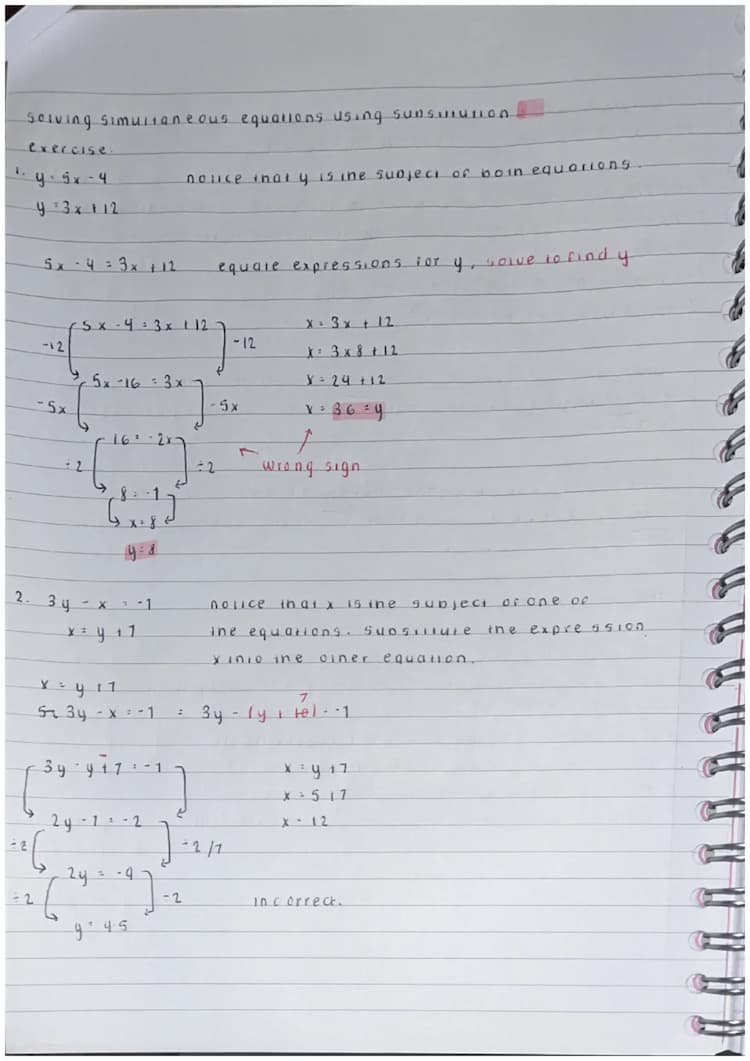 solving simultaneous equations using substitution
exercise.
1. y = 5x - 4 notice that y is the subject of both equations.
y = 3x + 12
5x - 4 = 3x + 12 equate expressions for y, solve to find y
5x - 4 = 3x + 12 x = 3x + 12
-12 -12 x = 3 x 8 + 12
5x - 16 = 3x x = 24 + 12
-5x -5x x = 36 = y
16 = -2x
÷2 ÷2 wrong sign
8 = -1
x = 8
y = 8
2. 3y - x = -1 notice that x is the subject of one of
x = y + 7 the equations. substitute the expression
x into the other equation.
x = y + 7
7
3y - x = -1 = 3y - (y + ) = -1
3y - y + 7 = -1 x = y + 7
x = 5 + 7
2y - 7 = -2 x = 12
÷2 ÷2/7
2y = -9
÷2 ÷2 incorrect.
y = 4.5